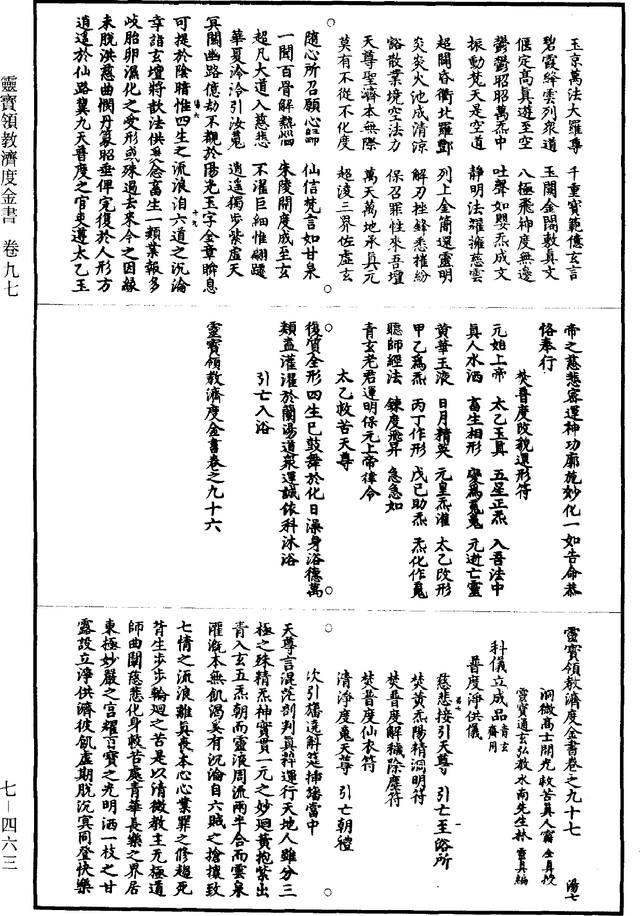 玉京萬法大羅尊　千重寶範儼玄言
碧霞絳雲列眾道　玉闕金闕敷真文
偃定高真遊至空　八極飛神度無邊
鬱鬱昭昭萬炁中　吐聲如嬰炁成文
振動梵天是空道　靜明法羅擁慈雲
超開昏衢北羅酆　列上金簡還靈明
炎炎火池成清涼　解刃挫鋒悉摧紛
谿散業境空法力　保召罪性來吾壇
天尊聖濟本無際　萬天萬地承真元
莫有不從不化度　超淩三界佐虛玄
隨心所召願心歸　仙信梵言如甘泉
一聞百骨解熱惱　朱陵開度成至玄
超凡大道入慈悲　不濯巨細惟翩躚
華夏泠泠引汝魂　逍遙獨步紫虛天
冥關幽路億劫不覩於陽光玉字金章瞬息
可提於陰暗惟四生之流浪洎六道之沉淪
幸詣玄壇將歆法供爰念畜生一類業報多
岐胎卵濕化之受形或殊過去來今之因敵
未脫洪慈曲憫丹篆昭垂俾完復於人形方
逍遙於仙路冀九天普度之官吏遵太乙玉
帝之慈悲密運神功廓施妙化一如告命恭
恪奉行
焚普度改貌還形符
元始上帝　太乙玉真　五星正炁　入吾法中
真人水洒　畜生相形　變為魂魄　元逝亡靈
黃華玉液　日月精英　元皇炁灌　太乙改形
甲乙為炁　丙丁作形　戊己助炁　炁化作魂
聽師經法　鍊度飛昇　急急如
青玄老君運明保元上帝律令
太乙救苦天尊
復質全形四生已鼓舞於化日澡身浴德萬
類盍灌濯於蘭湯道眾運誠依科沐浴
引亡入浴
靈寶領教濟度金書卷之九十六
靈寶領教濟度金書卷之九十七　湯七
洞微高士開光救苦真人甯全真授
靈寶通玄弘教水南先生林靈真編
科儀立成品
普度淨供儀
慈悲接引天尊　引亡至浴所
焚黃炁陽精洞明符
焚普度解穢除塵符
焚普度仙衣符
清淨度魂天尊　引亡朝禮
次引旛遶斛筵揷旛當中
天尊言混茫剖判真辭運行天地人雖分三
極之殊精炁神實貫一元之妙迴黃抱紫出
青入玄五炁朝而靈液周流兩半合而雲泉
灌溉本無飢渴奚有沉淪自六賊之搶攘致
七情之流浪離真喪本心心業罪之修趨死
背生步步輪迴之苦是以清微教主无極道
師曲開慈悲化身救苦處青華長樂之界居
東極妙嚴之宮耀百寶之光明洒一枝之甘
露設立淨供濟彼飢虛期脫沉冥同登快樂
靈寶領教濟度金書　卷九七
七－四六三